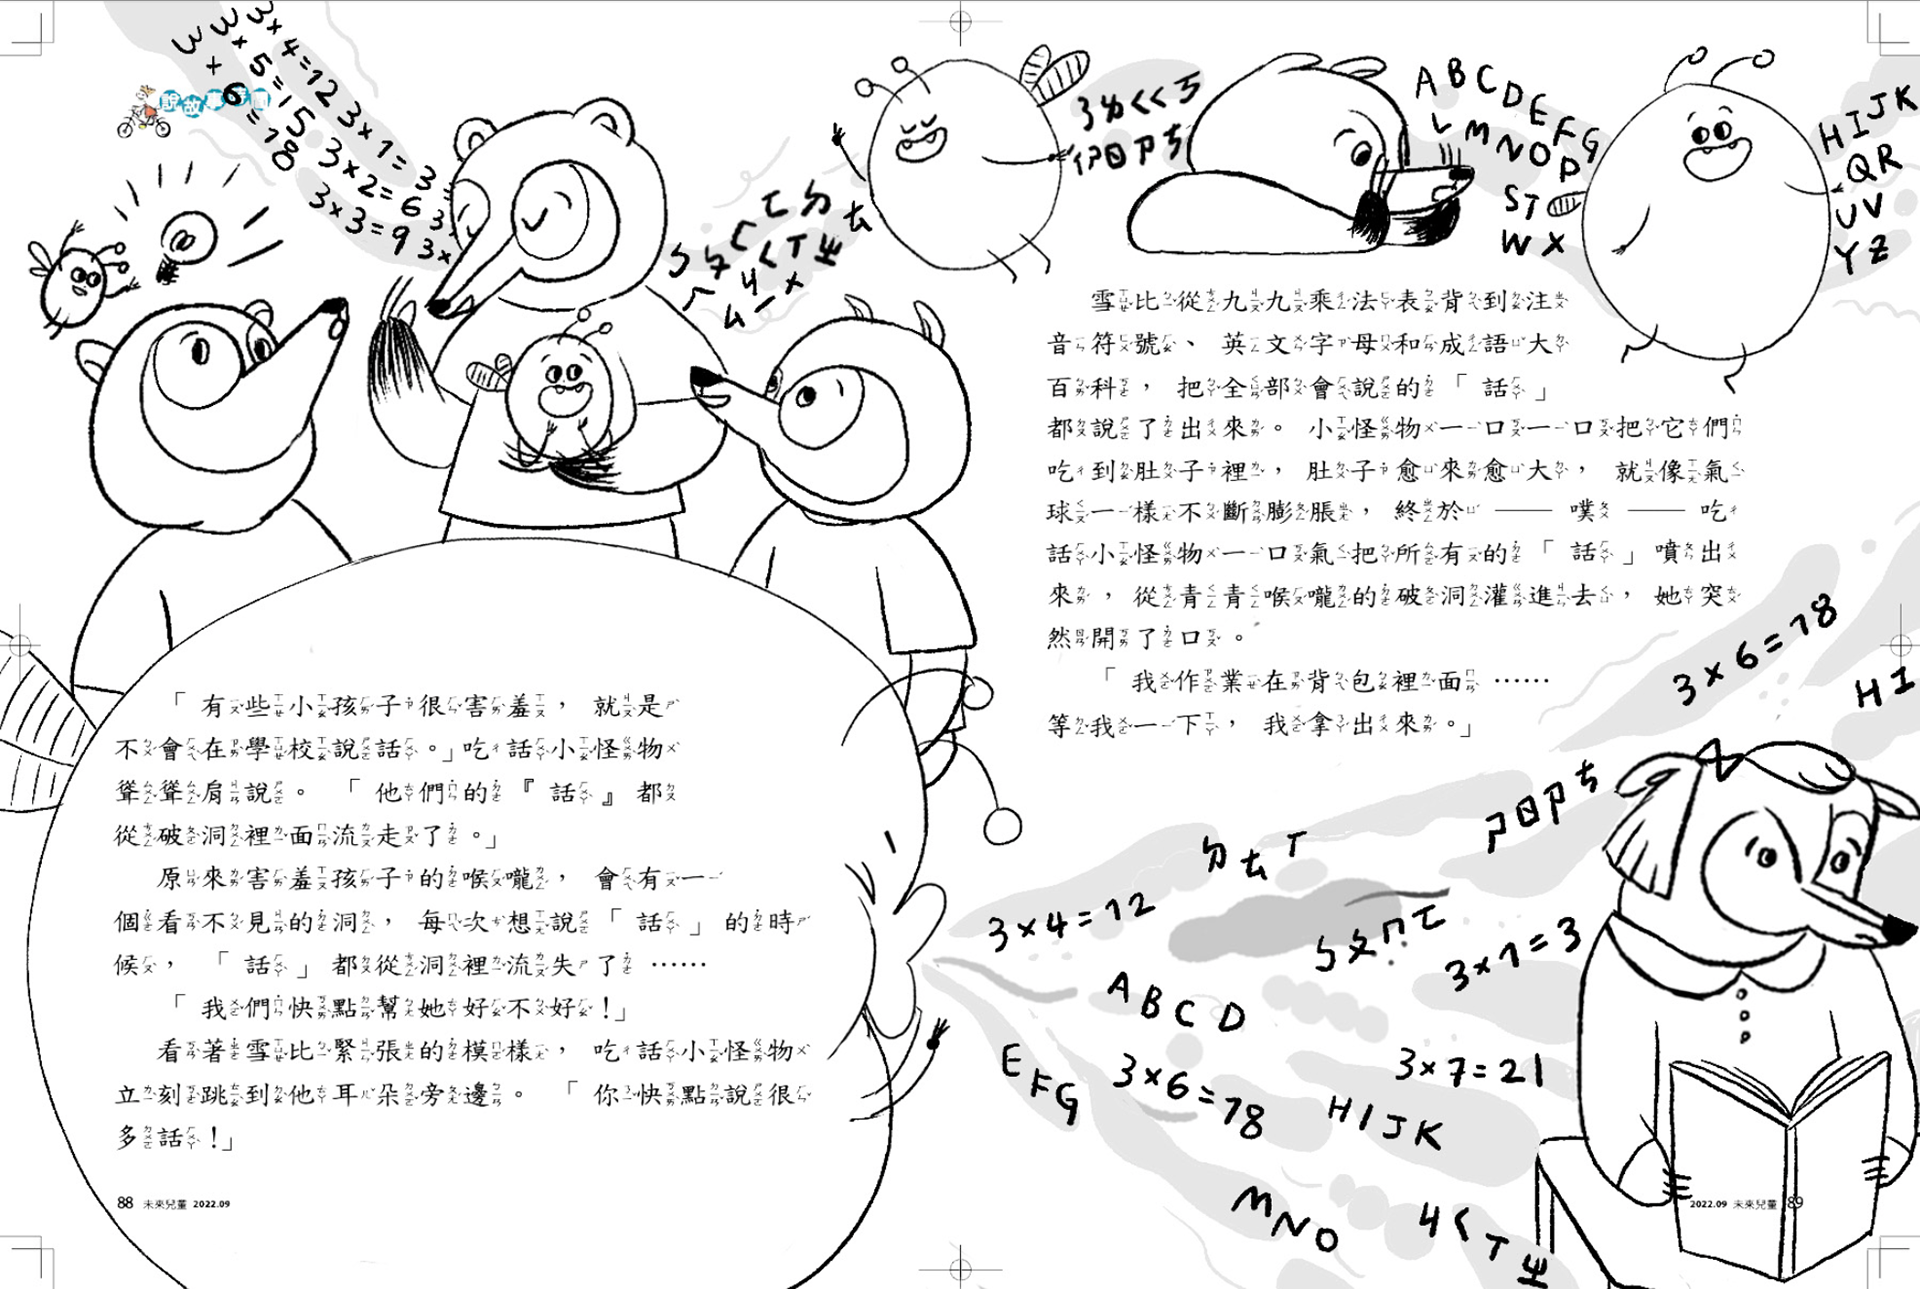 說故事樂園
3×4=12
3×5=15
3+6=18
3×1=3
3×2=6
3×3=9 3×
ㄣㄘㄈㄛㄉㄊ
ㄏㄙㄐㄑㄧㄒㄨㄓ
ㄋㄌㄑㄑㄎ
ㄗㄖㄕㄘ
ABCDEFG
LMNOP
ST
WX
HIJK
QR
UV
YZ
「有些小孩子很害羞,就是
不會在學校說話。」吃話小怪物
聳聳肩說。「他們的『話』都
從破洞裡面流走了。」
原來害羞孩子的喉嚨,會有一
個看不見的洞,每次想說「話」的時
候,「話」都從洞裡流失了……
「我們快點幫她好不好!」
看著雪比緊張的模樣,吃話小怪物
立刻跳到他耳朵旁邊。「你快點說很
多話!」
88 未來兒童 2022.09
雪比從九九乘法表背到注
音符號、英文字母和成語大
百科,把全部會說的「話」
都說了出來。小怪物一口一口把它們
吃到肚子裡,肚子愈來愈大,就像氣
球一樣不斷膨脹,終於——噗——吃
話小怪物一口氣把所有的「話」噴出
來,從青青喉嚨的破洞灌進去,她突
然開了口。
「我作業在背包裡面……
等我一下,我拿出來。」
3×6=18
HI
ㄗㄖㄕㄘ
ㄉㄊㄒ
3×4=12
ㄣㄆㄇㄛ
3×1=3
ABCD
EFG
3×6=18
3×7=21
HIJK
MNO
ㄐㄑㄒㄓ
2022.09 未來兒童 89